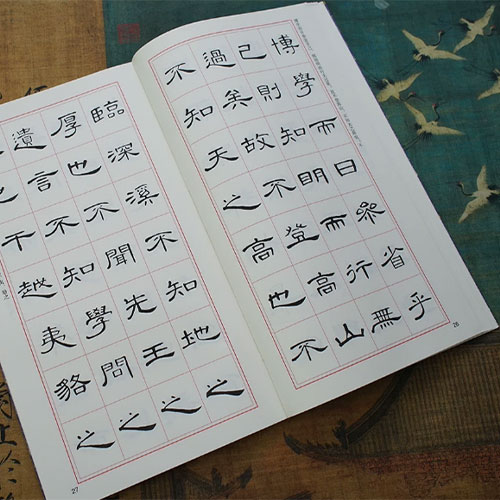 博學而日參省乎
己則知明而行無
過矣故不登高山
不知天之高也不
28
臨深溪不知地之
厚也不聞先王之
遺言不知學問之
也干越夷貉之
27